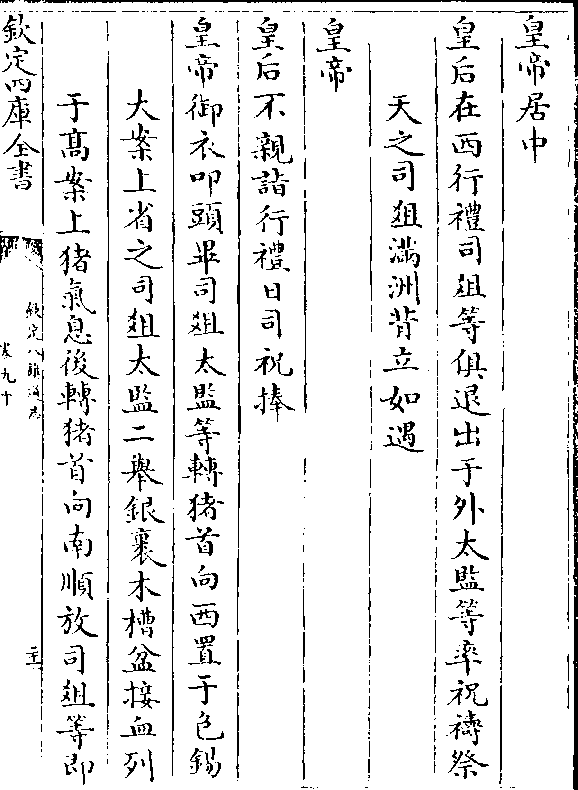 皇帝居中
皇后在西行禮司俎等俱退出于外太監等率祝禱祭
天之司俎滿洲背立如遇
皇帝
皇后不親詣行禮日司祝捧
皇帝御衣叩頭畢司俎太監等轉猪首向西置于包錫
大案上省之司俎太監二舉銀裏木槽盆接血列
于髙案上猪氣息後轉猪首向南順放司俎等即
欽定四庫全書
欽定八旗通志
卷九十